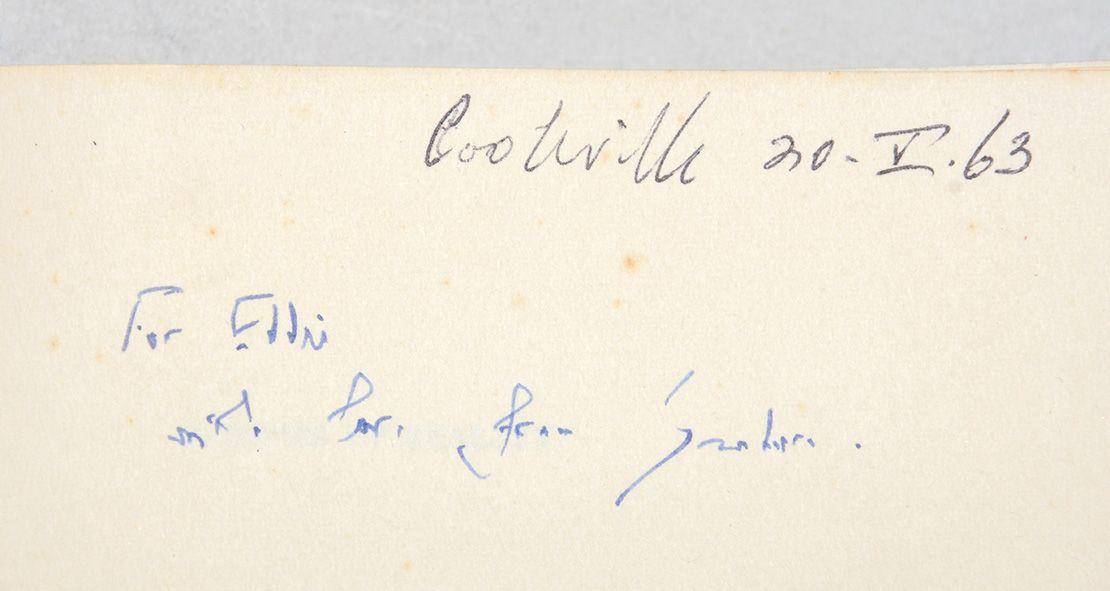 Cooleville 20-V.63
For Eddie
with love from Graham.